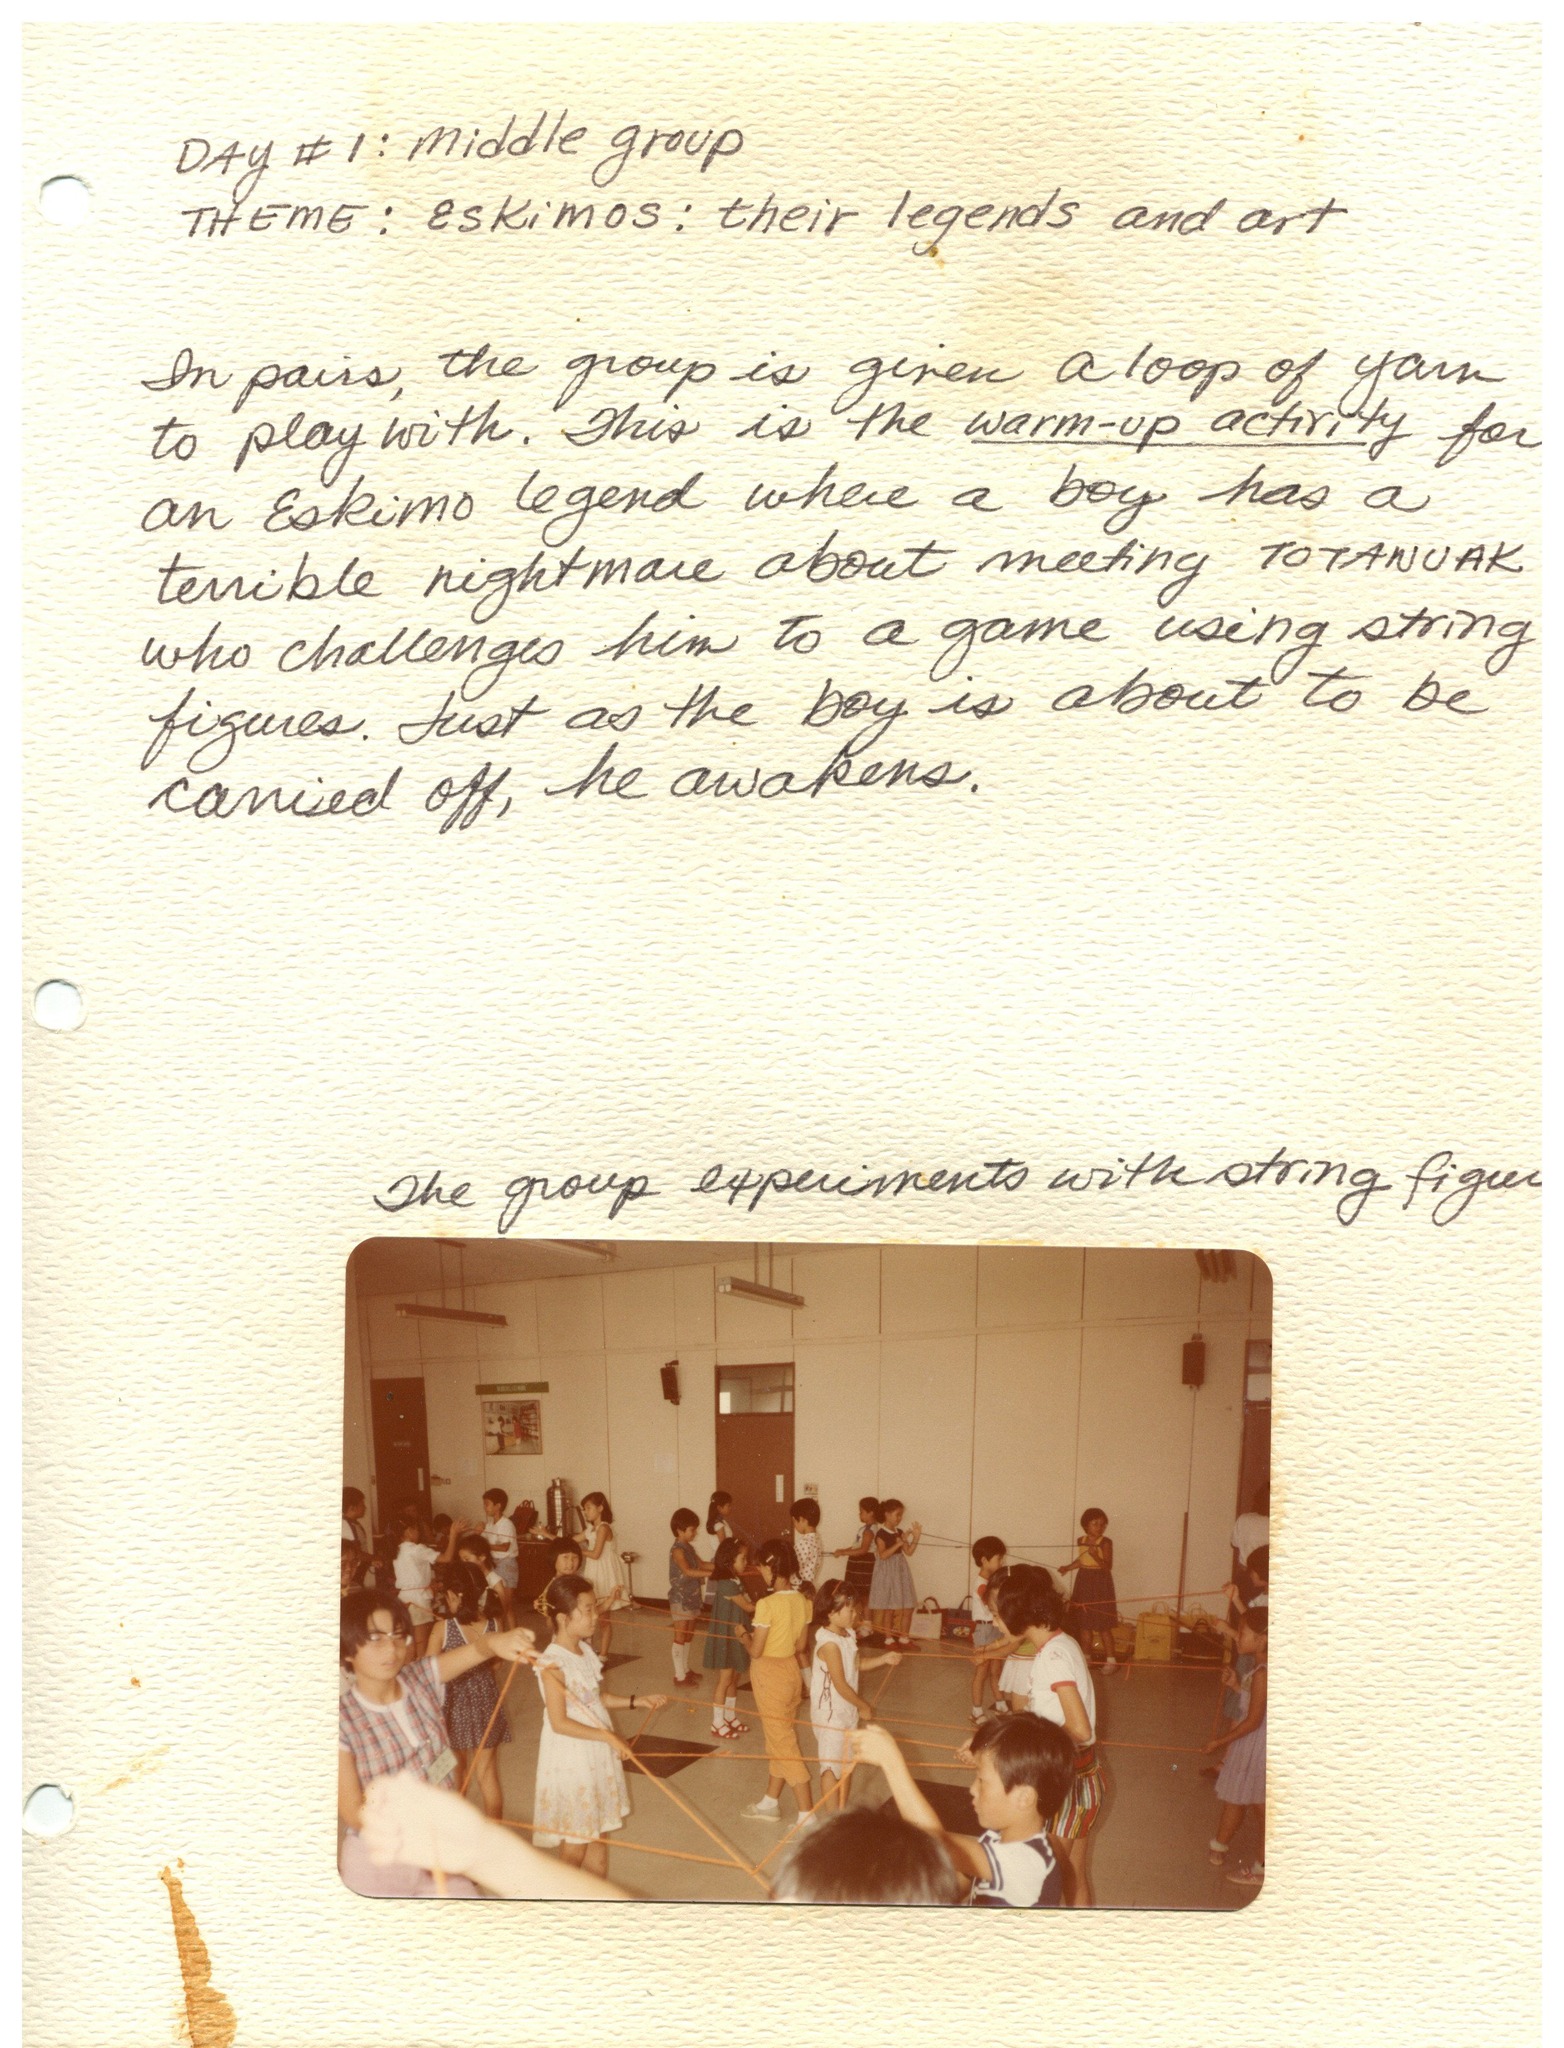 DAY #1: middle group
THEME: Eskimos: their legends and art
In pairs, the group is given a loop of yarn
to play with. This is the warm-up activity for
an Eskimo legend where a boy has a
terrible nightmare about meeting TOTANUAK
who challenges him to a game using string
figures. Just as the boy is about to be
carried off, he awakens.
The group experiments with string figur